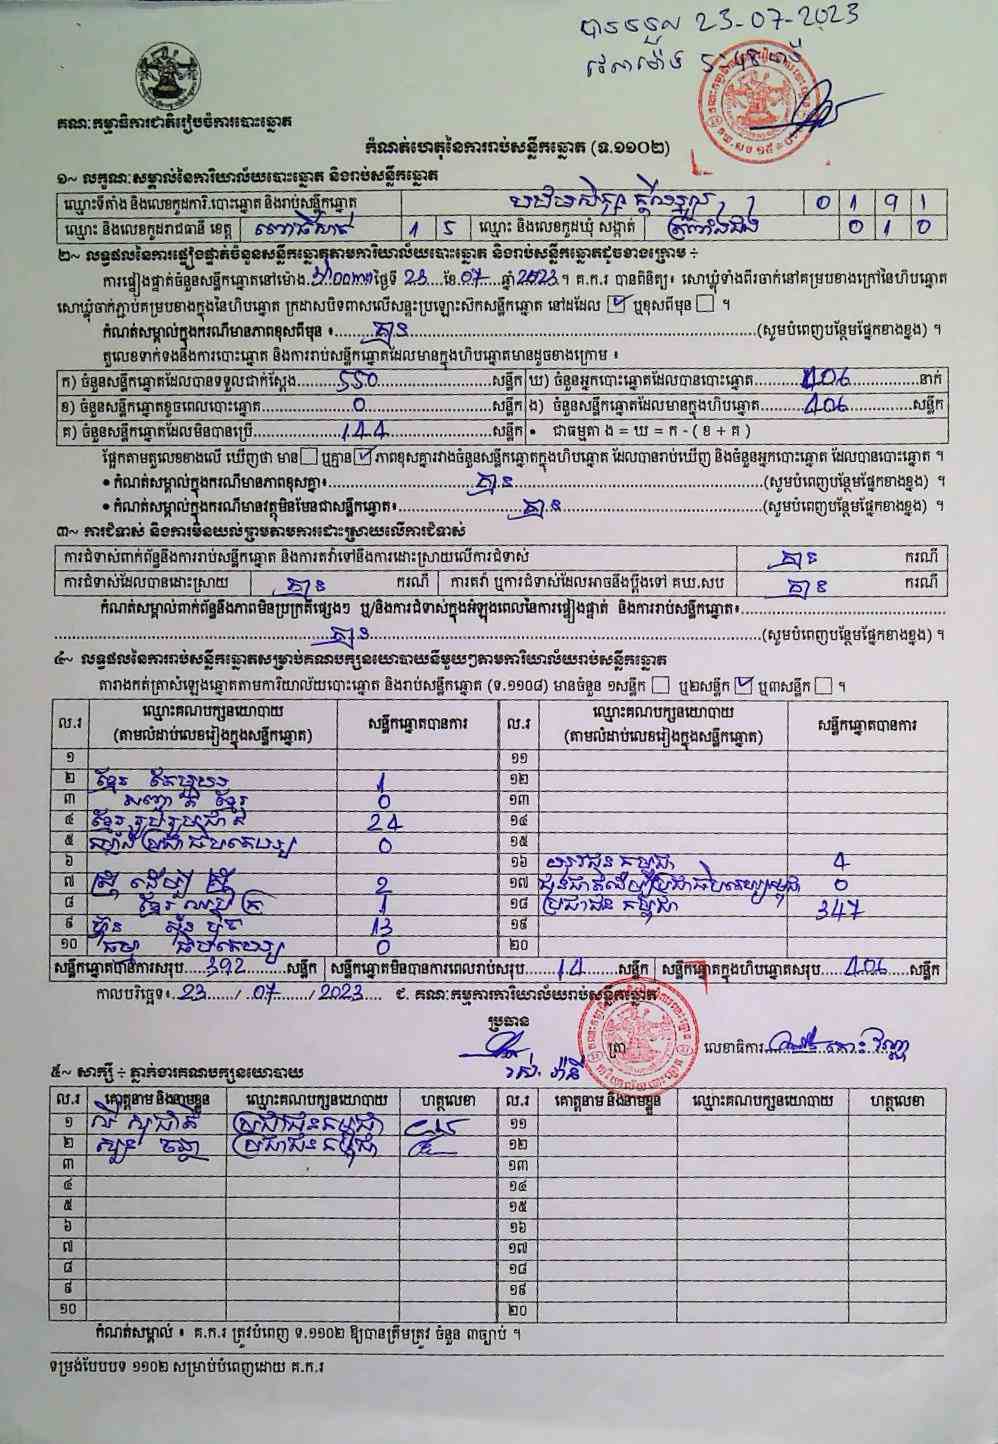 បានទទួល 23-07-2023
គណៈកម្មាធិការជាតិរៀបចំការបោះឆ្នោត
កំណត់ហេតុនៃការរាប់សន្លឹកឆ្នោត (ទ.១១០២)
១~ លក្ខណៈសម្គាល់នៃការិយាល័យបោះឆ្នោត និងរាប់សន្លឹកឆ្នោត
ឈ្មោះទីតាំង និងលេខកូដការិ.បោះឆ្នោត និងរាប់សន្លឹកឆ្នោត 0 1 9 1
ឈ្មោះ និងលេខកូដរាជធានី ខេត្ត ពោធិ៍សាត់ 1 5 ឈ្មោះ និងលេខកូដឃុំ សង្កាត់ 0 1 0
២~ លទ្ធផលនៃការផ្ទៀងផ្ទាត់ចំនួនសន្លឹកឆ្នោតតាមការិយាល័យបោះឆ្នោត និងរាប់សន្លឹកឆ្នោតដូចខាងក្រោម ÷
ការផ្ទៀងផ្ទាត់ចំនួនសន្លឹកឆ្នោតនៅម៉ោង ថ្ងៃទី 23 ខែ 07 ឆ្នាំ 2023 ។ គ.ក.រ បានពិនិត្យ៖ សោឃ្លុំទាំងពីរចាក់នៅគម្របខាងក្រៅនៃហិបឆ្នោត
សោឃ្លុំចាក់ភ្ជាប់គម្របខាងក្នុងនៃហិបឆ្នោត ក្រដាសបិទពាសលើសន្ទះប្រឡោះស៊កសន្លឹកឆ្នោត នៅដដែល ☑ ឬខុសពីមុន ☐ ។
កំណត់សម្គាល់ក្នុងករណីមានភាពខុសពីមុន ៖ គ្មាន (សូមបំពេញបន្ថែមផ្នែកខាងខ្នង) ។
តួលេខទាក់ទងនឹងការបោះឆ្នោត និងការរាប់សន្លឹកឆ្នោតដែលមានក្នុងហិបឆ្នោតមានដូចខាងក្រោម ៖
ក) ចំនួនសន្លឹកឆ្នោតដែលបានទទួលជាក់ស្តែង 550 សន្លឹក ឃ) ចំនួនអ្នកបោះឆ្នោតដែលបានបោះឆ្នោត 406 នាក់
ខ) ចំនួនសន្លឹកឆ្នោតខូចពេលបោះឆ្នោត 0 សន្លឹក ង) ចំនួនសន្លឹកឆ្នោតដែលមានក្នុងហិបឆ្នោត 406 សន្លឹក
គ) ចំនួនសន្លឹកឆ្នោតដែលមិនបានប្រើ 144 សន្លឹក • ជាធម្មតា ង = ឃ = ក - ( ខ + គ )
ផ្អែកតាមតួលេខខាងលើ ឃើញថា មាន ☐ ឬគ្មាន ☑ ភាពខុសគ្នារវាងចំនួនសន្លឹកឆ្នោតក្នុងហិបឆ្នោត ដែលបានរាប់ឃើញ និងចំនួនអ្នកបោះឆ្នោត ដែលបានបោះឆ្នោត ។
• កំណត់សម្គាល់ក្នុងករណីមានភាពខុសគ្នា៖ គ្មាន (សូមបំពេញបន្ថែមផ្នែកខាងខ្នង) ។
• កំណត់សម្គាល់ក្នុងករណីមានវត្ថុមិនមែនជាសន្លឹកឆ្នោត៖ គ្មាន (សូមបំពេញបន្ថែមផ្នែកខាងខ្នង) ។
៣~ ការជំទាស់ និងការមិនយល់ព្រមតាមការដោះស្រាយលើការជំទាស់
ការជំទាស់ពាក់ព័ន្ធនឹងការរាប់សន្លឹកឆ្នោត និងការតវ៉ាទៅនឹងការដោះស្រាយលើការជំទាស់ គ្មាន ករណី
ការជំទាស់ដែលបានដោះស្រាយ គ្មាន ករណី ការតវ៉ា ឬការជំទាស់ដែលអាចនឹងប្តឹងទៅ គឃ.សប គ្មាន ករណី
កំណត់សម្គាល់ពាក់ព័ន្ធនឹងភាពមិនប្រក្រតីផ្សេងៗ ឬ/និងការជំទាស់ក្នុងអំឡុងពេលនៃការផ្ទៀងផ្ទាត់ និងការរាប់សន្លឹកឆ្នោត៖
គ្មាន (សូមបំពេញបន្ថែមផ្នែកខាងខ្នង) ។
៤~ លទ្ធផលនៃការរាប់សន្លឹកឆ្នោតសម្រាប់គណបក្សនយោបាយនីមួយៗតាមការិយាល័យរាប់សន្លឹកឆ្នោត
តារាងកត់ត្រាសំឡេងឆ្នោតតាមការិយាល័យបោះឆ្នោត និងរាប់សន្លឹកឆ្នោត (ទ.១១០៨) មានចំនួន ១សន្លឹក ☐ ឬ២សន្លឹក ☑ ឬ៣សន្លឹក ☐ ។
ល.រ ឈ្មោះគណបក្សនយោបាយ (តាមលំដាប់លេខរៀងក្នុងសន្លឹកឆ្នោត) សន្លឹកឆ្នោតបានការ ល.រ ឈ្មោះគណបក្សនយោបាយ (តាមលំដាប់លេខរៀងក្នុងសន្លឹកឆ្នោត) សន្លឹកឆ្នោតបានការ
១ ១១
២ ខ្មែរ តែមួយ 1 ១២
៣ ខ្មែរ 0 ១៣
៤ ខ្មែររួបរួមជាតិ 24 ១៤
៥ ប្រជាធិបតេយ្យ 0 ១៥
៦ ១៦ យុវជន កម្ពុជា 4
៧ ស្ត្រី ដើម្បី ស្ត្រី 2 ១៧ ជនជាតិដើមប្រជាធិបតេយ្យកម្ពុជា 0
៨ ខ្មែរ ឈប់ ក្រ 1 ១៨ ប្រជាជន កម្ពុជា 347
៩ ហ្វ៊ុន ស៊ិន ប៉ិច 13 ១៩
១០ ធម្មា ធិបតេយ្យ 0 ២០
សន្លឹកឆ្នោតបានការសរុប 392 សន្លឹក សន្លឹកឆ្នោតមិនបានការពេលរាប់សរុប 14 សន្លឹក សន្លឹកឆ្នោតក្នុងហិបឆ្នោតសរុប 406 សន្លឹក
កាលបរិច្ឆេទ៖ 23 / 07 / 2023 ជ. គណៈកម្មការការិយាល័យរាប់សន្លឹកឆ្នោត
ប្រធាន
ត្រា លេខាធិការ
៥~ សាក្សី ÷ ភ្នាក់ងារគណបក្សនយោបាយ
ល.រ គោត្តនាម និងនាមខ្លួន ឈ្មោះគណបក្សនយោបាយ ហត្ថលេខា ល.រ គោត្តនាម និងនាមខ្លួន ឈ្មោះគណបក្សនយោបាយ ហត្ថលេខា
១ លី សុជាតិ ប្រជាជនកម្ពុជា ១១
២ ប្រជាជនកម្ពុជា ១២
៣ ១៣
៤ ១៤
៥ ១៥
៦ ១៦
៧ ១៧
៨ ១៨
៩ ១៩
១០ ២០
កំណត់សម្គាល់ ៖ គ.ក.រ ត្រូវបំពេញ ទ.១១០២ ឱ្យបានត្រឹមត្រូវ ចំនួន ៣ច្បាប់ ។
ទម្រង់បែបបទ ១១០២ សម្រាប់បំពេញដោយ គ.ក.រ